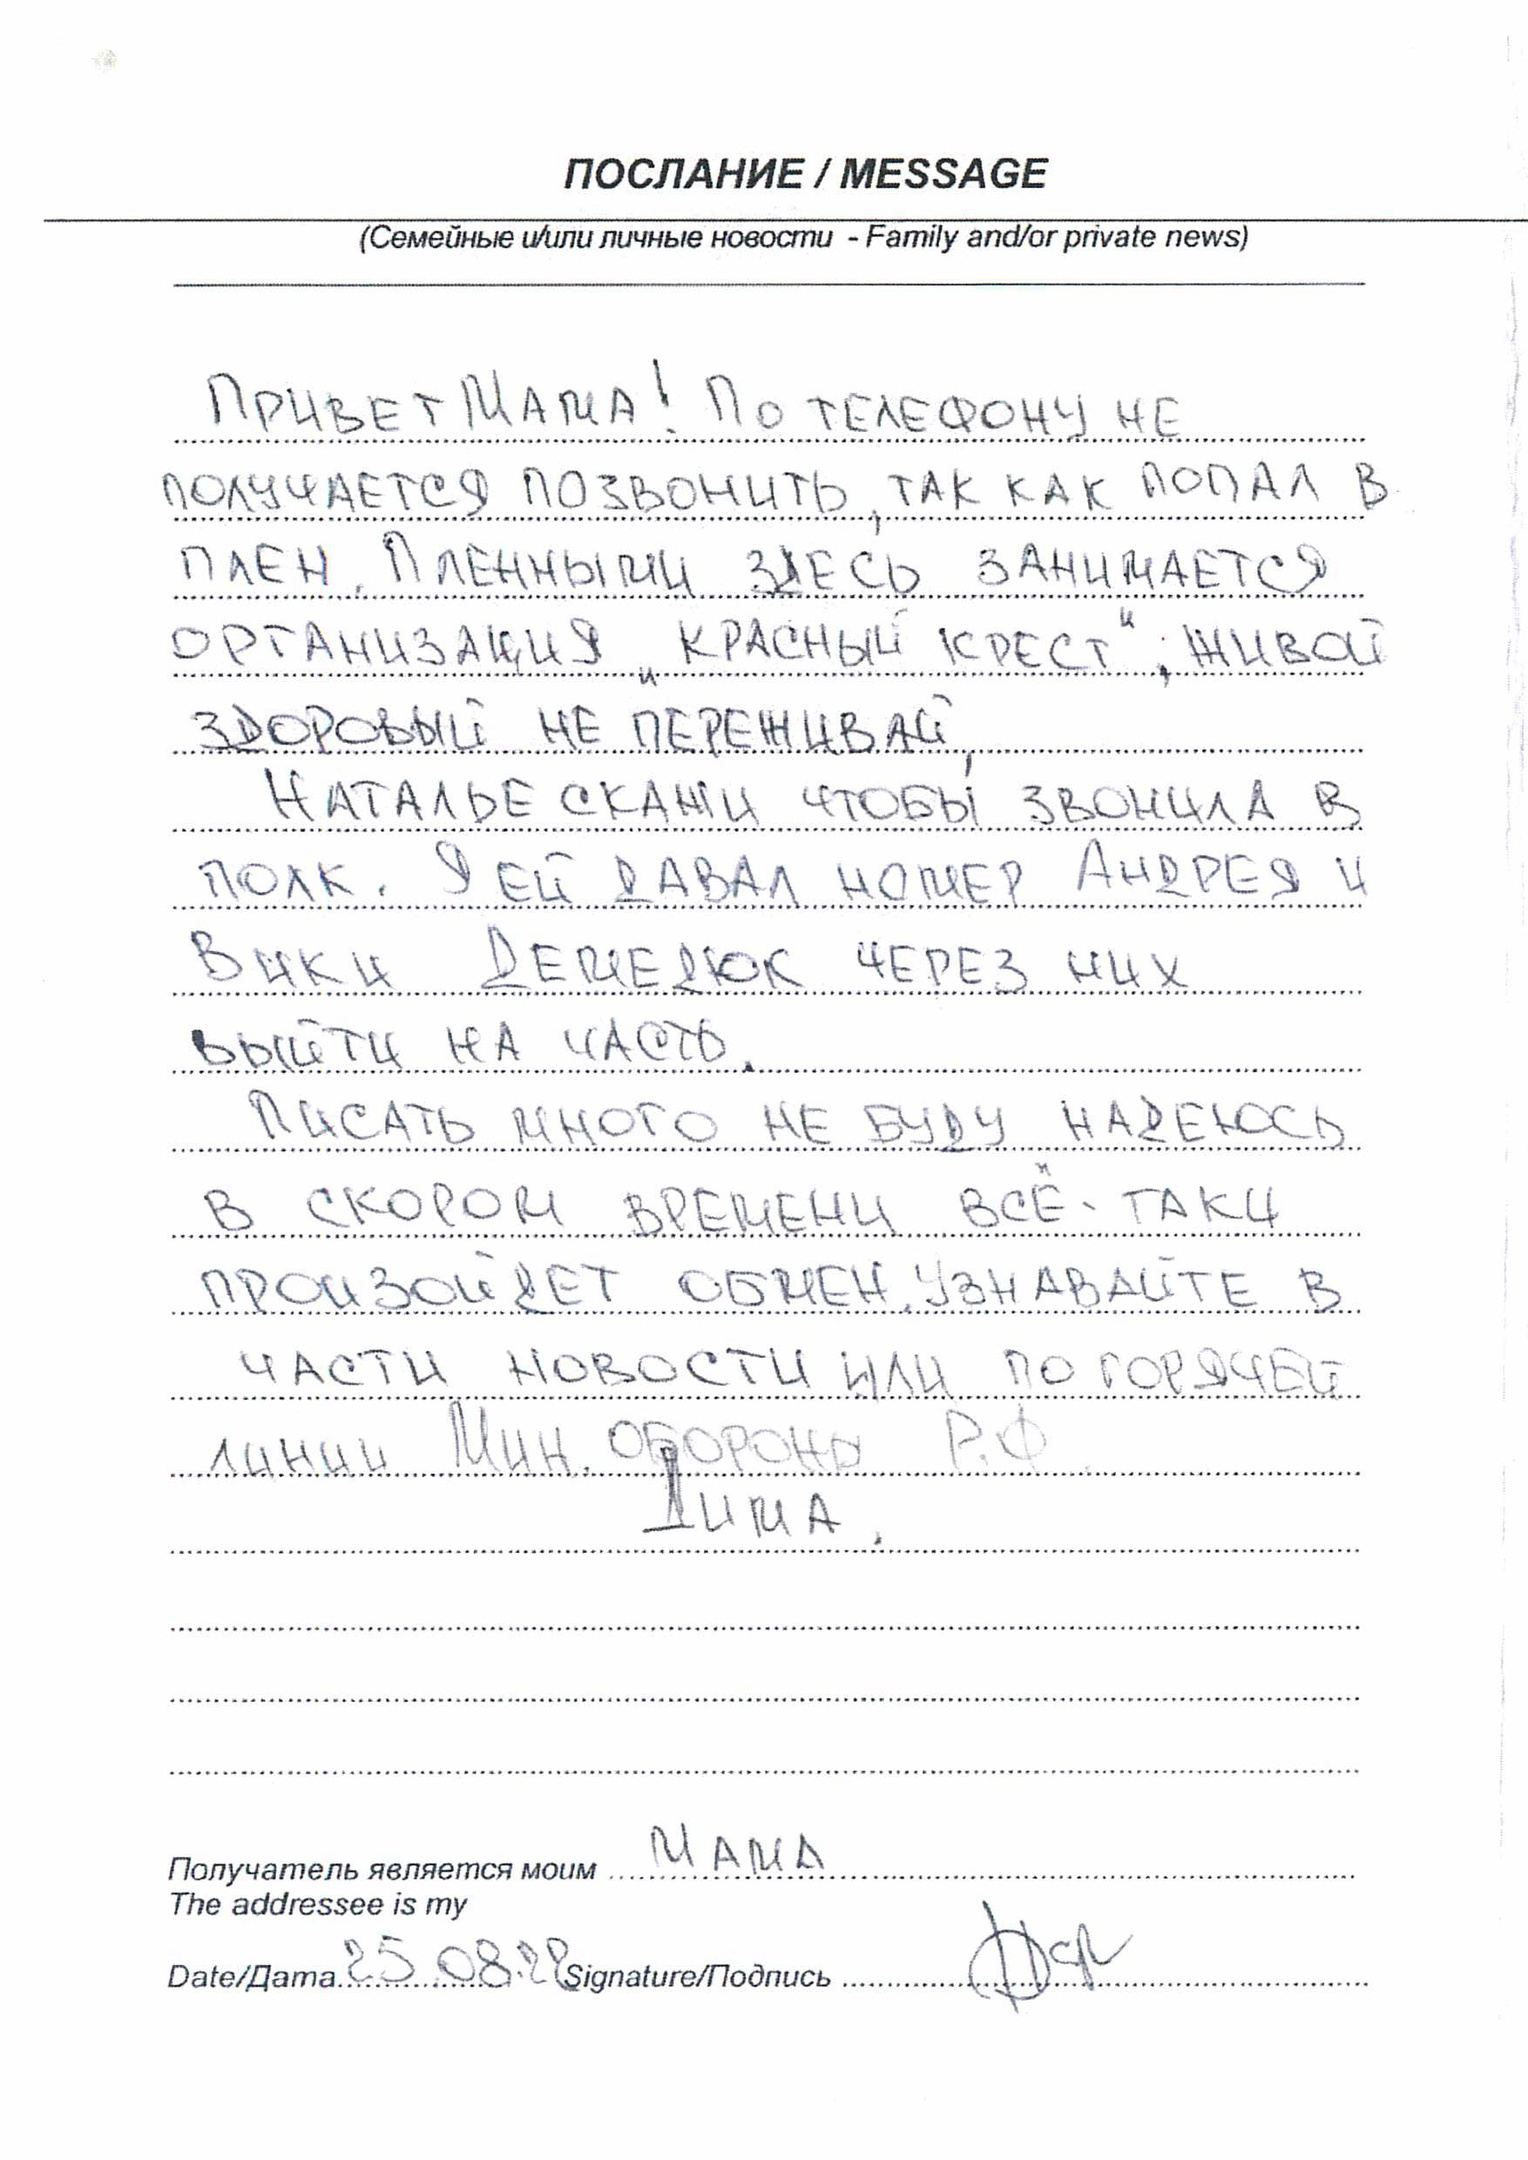 ПОСЛАНИЕ / MESSAGE
(Семейные и/или личные новости - Family and/or private news)
Привет Мама! По телефону не
получается позвонить, так как попал в
плен. Пленными здесь занимается
организация "Красный крест", живой
здоровый не переживай,
Наталье скажи чтобы звонила в
полк. Я ей давал номер Андрея и
Вики Демедюк через них
выйти на часть.
Писать много не буду надеюсь
в скором времени всё-таки
произойдет обмен. Узнавайте в
части новости или по горячей
линии Мин. обороны Р.Ф.
Дима.
Получатель является моим Мама
The addressee is my
Date/Дата 25.08.22 Signature/Подпись